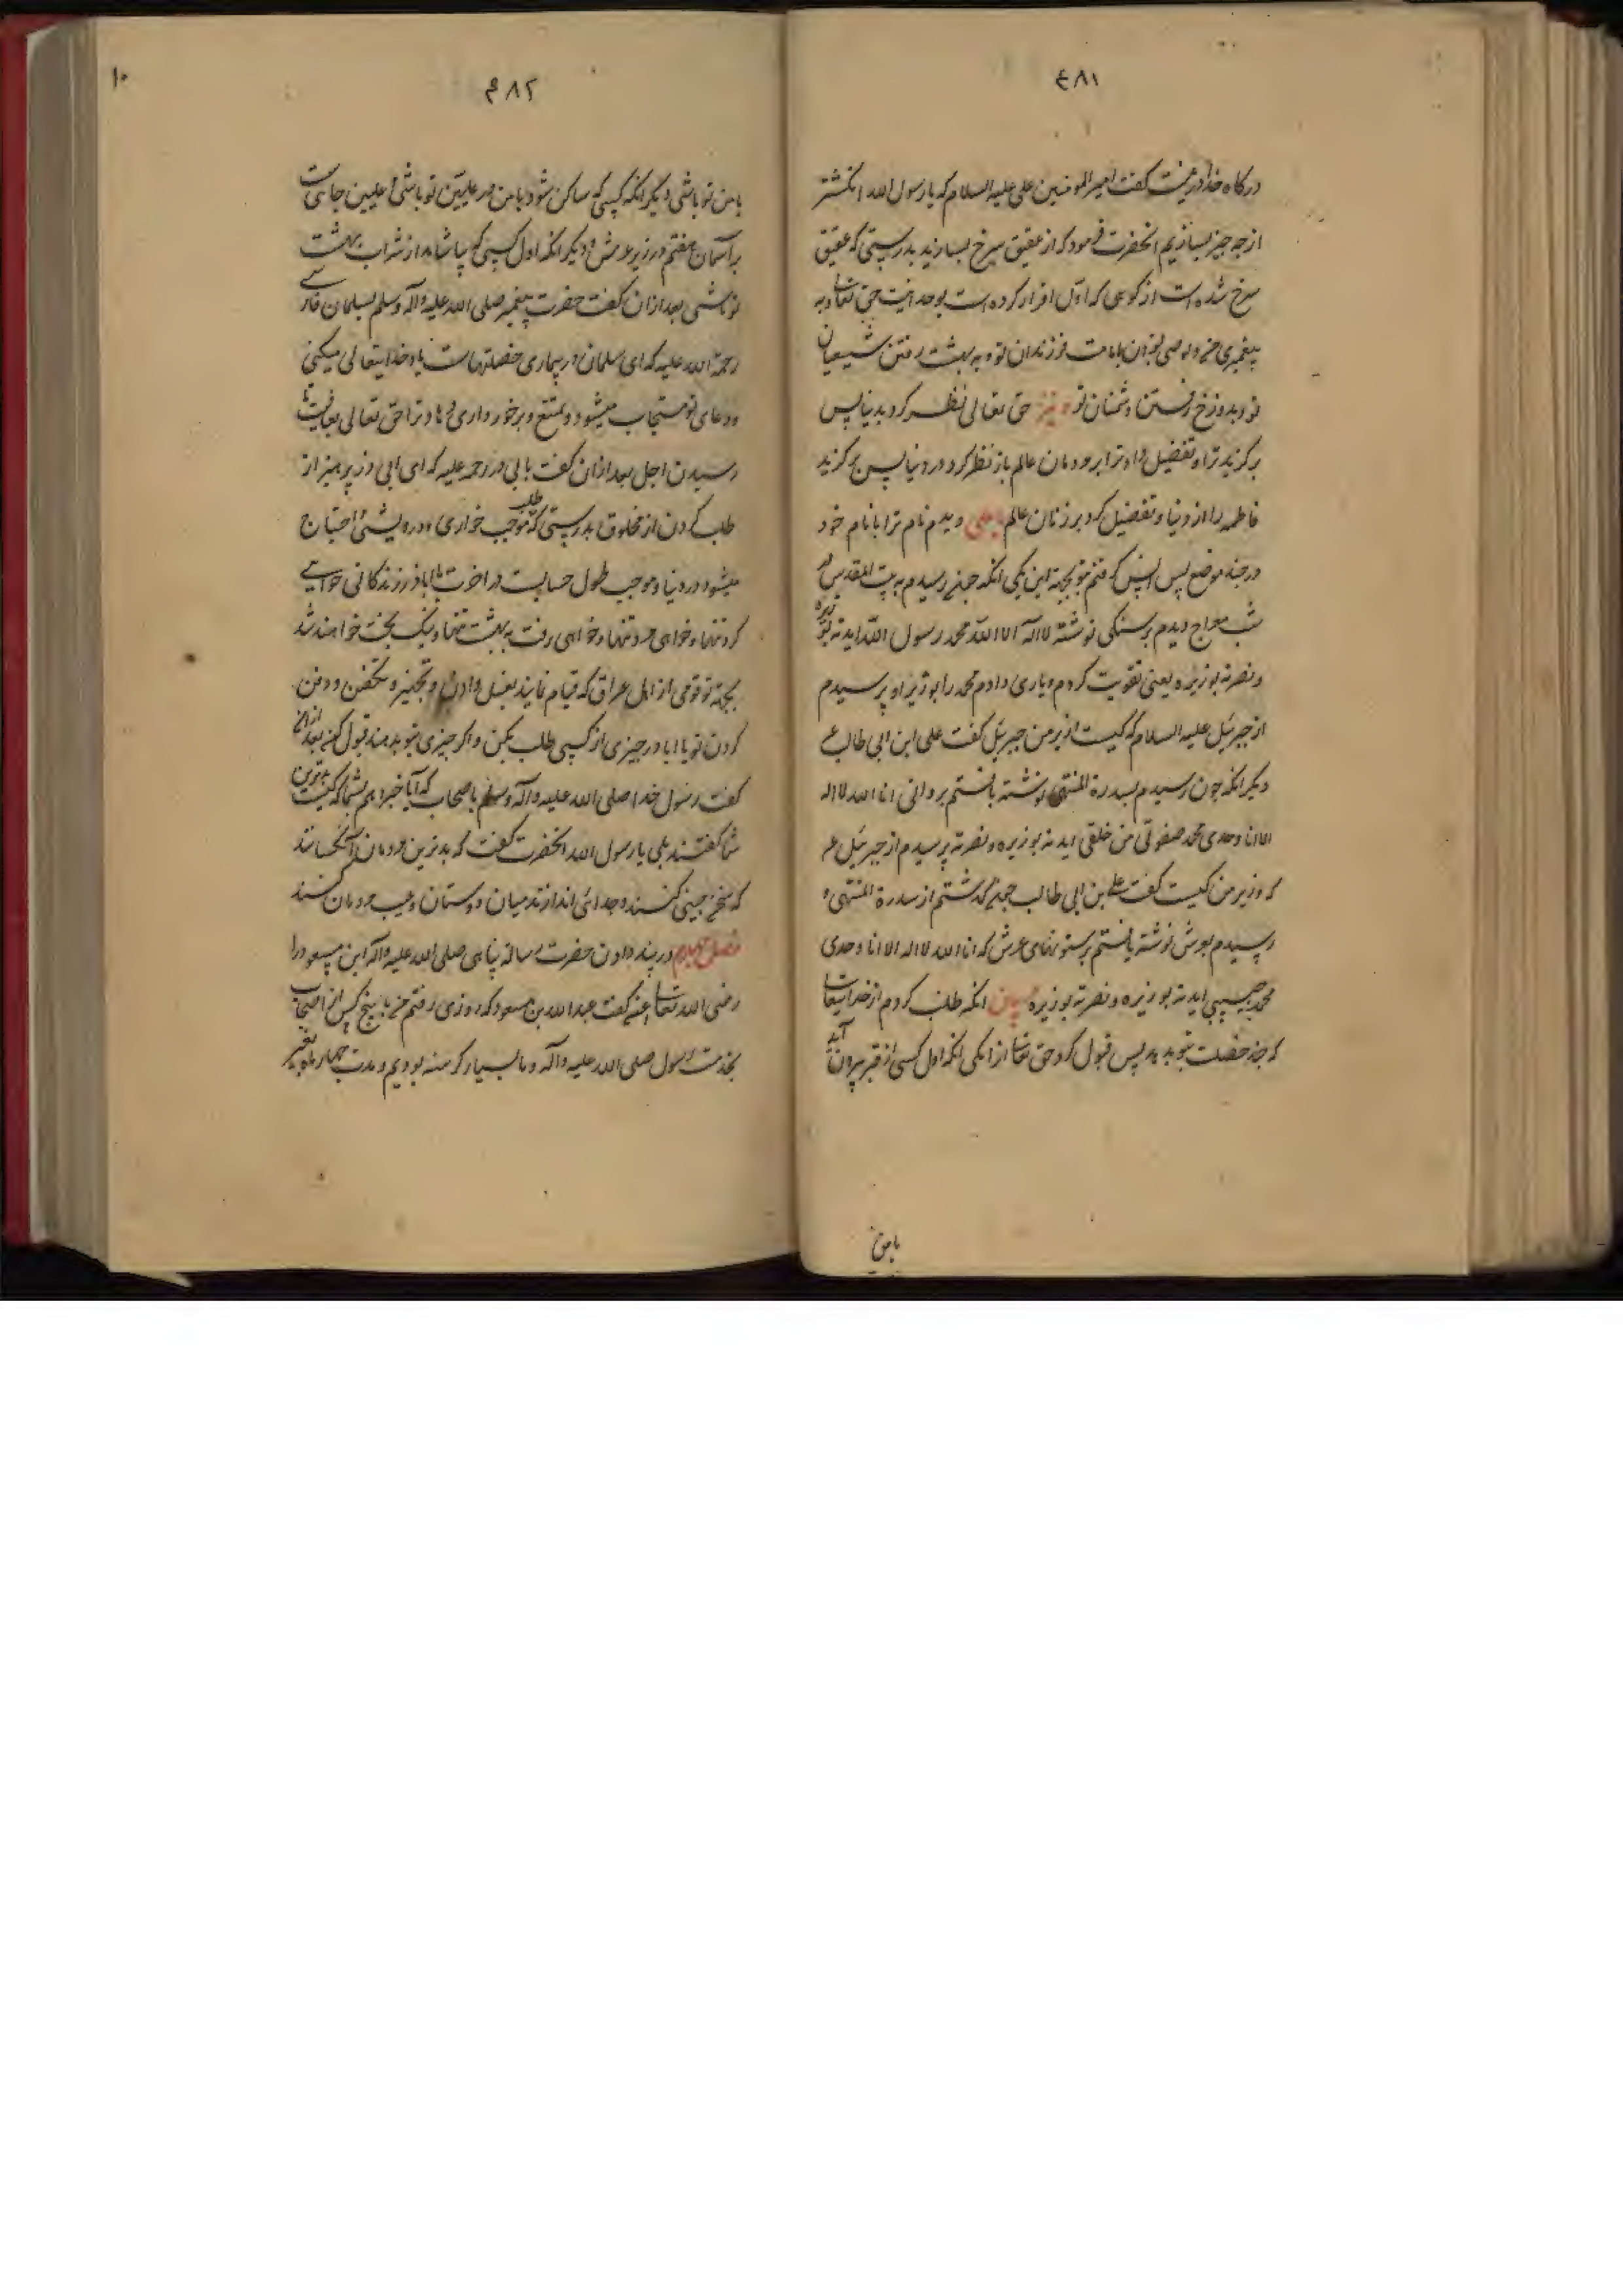 ۴۸۱
درکاه خدا در بهشت کفت امیر المومنین علی علیه السلام که یا رسول الله انکشتر
از چه چیز بسازیم انحضرت فرمود که از عقیق سرخ بسازید بدرستی که عقیق
سرخ شده است از کوهی که اول اقرار کرده است بوحدانیت حق تعالی و به
پیغمبری من و بوصی بودن بامامت فرزندان تو و به بهشت رفتن شیعیان
تو و بدوزخ رفتن دشمنان تو حق تعالی نظر کرد بدنیا پس
برکزید ترا و تفضیل داد ترا بر مردمان عالم باز نظر کرد در دنیا پس برکزید
فاطمه را از دنیا و تفضیل کرد بر زنان عالم یا علی دیدم نام ترا با نام خود
در چند موضع پس انس کرفتم بتو بجهة این یکی انکه چون رسیدم به بیت المقدس در
شب معراج دیدم بر سنکی نوشته لا اله الا الله محمد رسول الله ایدته بوزیره
و نصرته بوزیره یعنی تقویت کردم و یاری دادم محمد را بوزیر او پرسیدم
از جبرئیل علیه السلام که کیست وزیر من جبرئیل کفت علی ابن ابی طالب ع
دیکر انکه چون رسیدم بسدرة المنتهی نوشته یافتم بر وانی انا الله لا اله
الا انا وحدی محمد صفوتی من خلقی ایدته بوزیره و نصرته پرسیدم از جبرئیل ع
که وزیر من کیست کفت علی بن ابی طالب چون کذشتم از سدرة المنتهی و
رسیدم بعرش نوشته یافتم بر ستونهای عرش که انا الله لا اله الا انا وحدی
محمد حبیبی ایدته بوزیره و نصرته بوزیره انکه طلب کردم از خدایتعالی
که چند خصلت بتو بدهد پس قبول کرد حق تعالی از یکی انکه اول کسی از قبر بیرون آید
با من
۴۸۲
۱۰
با من تو باشی دیکر انکه کسی که ساکن شود با من در علیین تو باشی و علیین جائیست
بر آسمان هفتم در زیر عرش و دیکر انکه اول کسی که بیاشامد از شراب بهشت
تو باشی بعد ازان کفت حضرت پیغمبر صلی الله علیه و آله و سلم بسلمان فارسی
رحمة الله علیه که ای سلمان در بیماری خصلتهاست یاد خدایتعالی میکنی
و دعای تو مستجاب میشود و تمتع و برخورداری دهاد ترا حق تعالی بعافیت تا
رسیدن اجل بعد ازان کفت بابی ذر رحمه علیه که ای ابی ذر پرهیز از
طلب کردن از مخلوق بدرستی که طلب موجب خواری و درویشی و احتیاج
میشود در دنیا و موجب طول حسابست در اخرت یا ابا ذر زندکانی خواهی
کرد تنها و خواهی مرد تنها و خواهی رفت به بهشت تنها و نیک بخت خواهند شد
بجهة تو قومی از اهل عراق که قیام نمایند بغسل دادن و تجهیز و تکفین و دفن
کردن تو یا ابا ذر چیزی از کسی طلب مکن و اکر چیزی بتو بدهند قبول کن بعد ازان
کفت رسول خدا صلی الله علیه و آله و سلم باصحاب که آیا خبر دهم شما که کیست بدترین
شما کفتند بلی یا رسول الله انحضرت کفت که بدترین مردمان آنکسانند
که سخن چینی کنند و جدائی اندازند میان دوستان و عیب مردمان کنند
فصل چهارم در پند دادن حضرت رسالة پناهی صلی الله علیه و آله ابن مسعود را
رضی الله تعالی عنه کفت عبد الله بن مسعود که روزی رفتم من با پنج کس از اصحاب
بخدمت رسول صلی الله علیه و آله و ما بسیار کرسنه بودیم و مدت چهار ماه بغیر